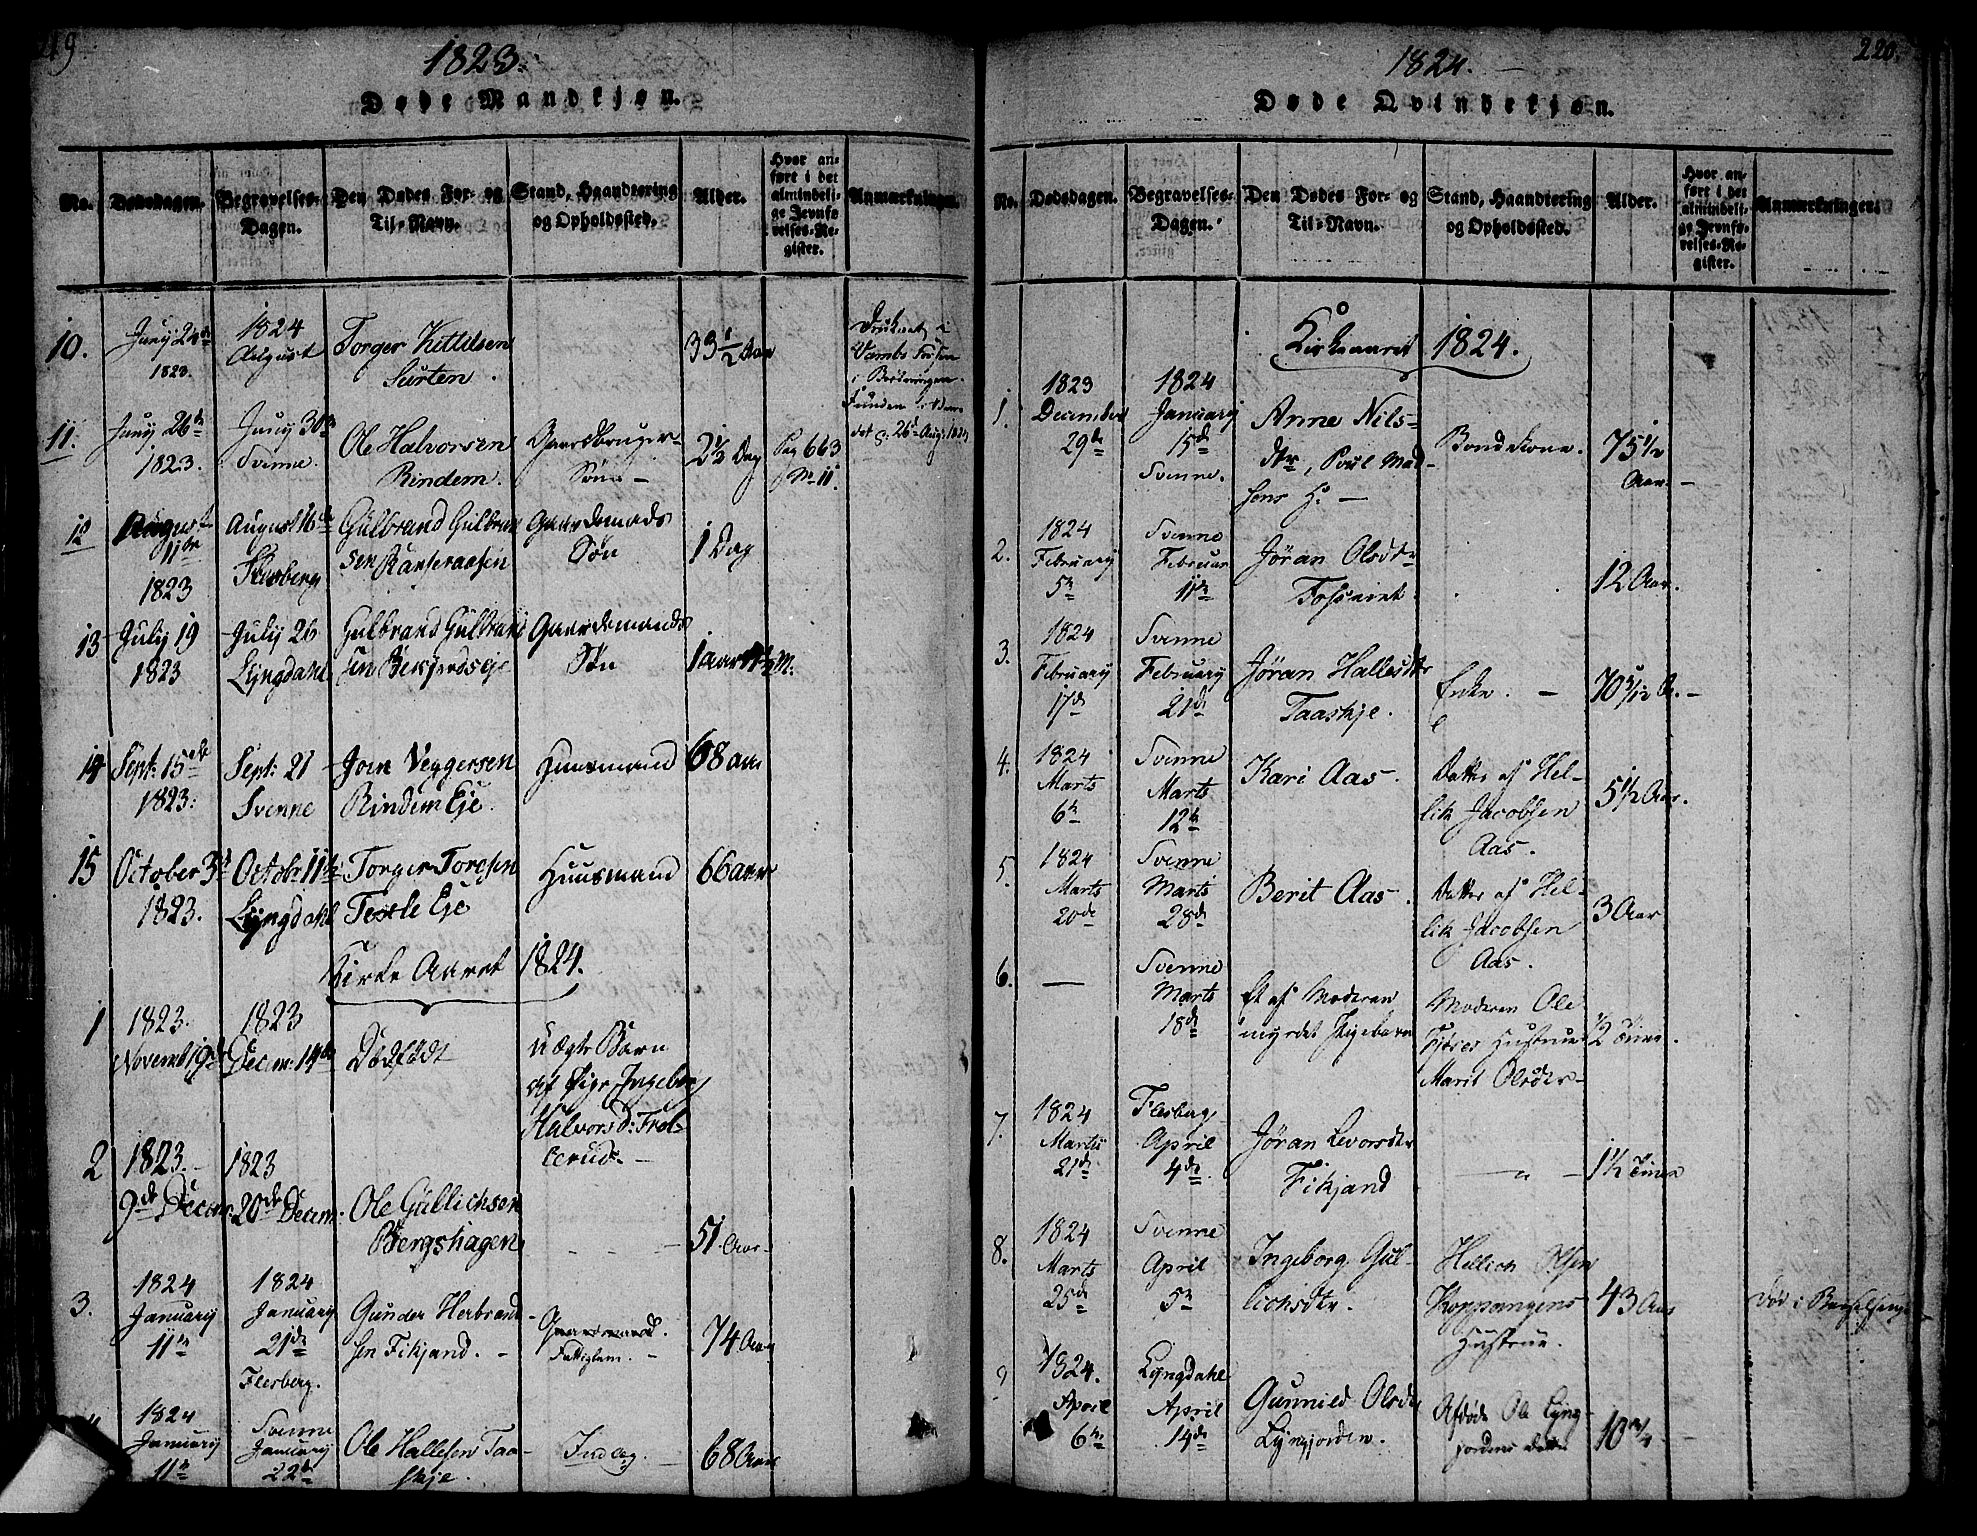 19
1823.
Døde Mandkjøn.
No.
Dødsdagen.
Begravelses-
Dagen.
Den Dødes For- og
Til-Navn.
Stand, Haandtering
og Opholdssted.
Alder.
Hvor an-
ført i det
almindeli-
ge Jevnfø-
relses-Re-
gister.
Anmærkninger.
10.
Juny 24de
1823.
1824
August
Torger Kittilsen
Surten.
33 1/2 Aar
Druknet i
Funden
d. 26 Aug: 1824
11.
Juny 26de
1823.
Juny 30te
Svenne.
Ole Halvorsen
Rindem.
Gaardbruger-
Søn
2 1/2 Dag
Pag 663
No 11.
12
August
11te
1823
August 16de
Flesberg
Gulbrand Gulbran
sen
Gaardmands
Søn
1 Dag
13
July 19
1823
July 26
Lyngdahl
Gulbrand Gulbrand
sen
Gaardemands
Søn
1 aar
14
Sept: 15de
1823:
Sept: 21
Svenne
Joen Veggersen
Rindem Eje.
Huusmand
68 aar
15
October 3de
1823.
Octobr: 11te
Lyngdahl
Torger Torgsen
Teksle Eje
Huusmand
66 aar
Kirke Aaret 1824.
1
1823.
Novemb: 19de
1823
Decem: 14de
Dødfødt
Uægte Barn
af Pige Ingeborg
Halvorsd:
2
1823.
9de Decem:
1823
20de Decem:
Ole Gullichsen
Bergshagen
51 Aar
3.
1824
January
11te
1824
January
21de
Flesberg.
Gunder Herbrand
sen Fikjand.
Gaardmand.
Fattiglem.
74 Aar
1824
January
11te
Svenne
January
22de
Ole Hallesen Taa-
skje.
Indleg.
68 Aar
220.
1824.
Døde Qvindekjøn.
No.
Dødsdagen.
Begravelses-
Dagen.
Den Dødes For- og
Til-Navn.
Stand, Haandtering
og Opholdssted.
Alder.
Hvor an-
ført i det
almindeli-
ge Jevnfø-
relses-Re-
gister.
Anmærkninger.
Kirkeaaret 1824.
1.
1823
December
29de
1824
January
15de
Svenne.
Anne Nils-
dtr, Poul Mad-
sens H.
Bondekone.
75 1/2
Aar
2.
1824
February
5te
Svenne
Februar
11te
Jøran Olsdtr
12 Aar.
3.
1824
February
17de
Svenne
February
21de
Jøran Hallesdtr
Taaskje.
Enke.
70 5/12 A.
4.
1824
Marts
6te
Svenne
Marts
12te
Kari Aas.
Datter af Hel-
lik Jacobsen
Aas.
5 1/2 Aar.
5.
1824
Marts
20de
Svenne
Marts
28de
Berit Aas.
Datter af Hel-
lik Jacobsen
Aas.
3 Aar
6.
Svenne
Marts
18de
Et af Moderen
myrdet Pigebarn
Moderen Ole
Hustrue
Marit Olsdtr
1/2 Time.
7.
1824
Marts
21de
Flesberg
April
4de
Jøran Levorsdtr
Fikjand
1 1/2 Time
8.
1824
Marts
25de
Svenne
April
5te
Ingeborg Gul-
lichsdtr.
Hellich Olsen
Koppangens
Hustrue.
43 Aar
Død i Barselseng
9
1824.
April
6te
Lyngdahl
April
14de
Gunnild Olsdtr
Lyngjorden.
Afdøde Ole Lyng-
jordens Datter
10